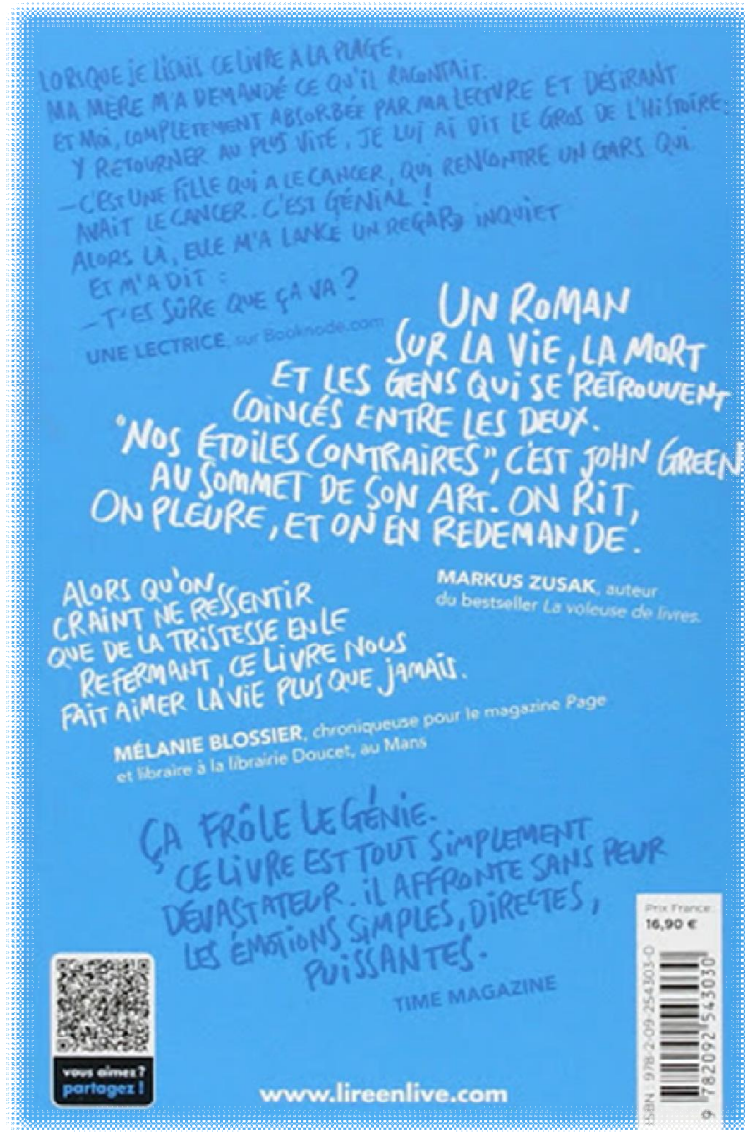 LORSQUE JE LISAIS CE LIVRE À LA PLAGE,
MA MÈRE M'A DEMANDÉ CE QU'IL RACONTAIT.
ET MOI, COMPLÈTEMENT ABSORBÉE PAR MA LECTURE ET DÉSIRANT
Y RETOURNER AU PLUS VITE, JE LUI AI DIT LE GROS DE L'HISTOIRE.
–C'EST UNE FILLE QUI A LE CANCER, QUI RENCONTRE UN GARS QUI
AVAIT LE CANCER. C'EST GÉNIAL !
ALORS LÀ, ELLE M'A LANCÉ UN REGARD INQUIET
ET M'A DIT :
–T'ES SÛRE QUE ÇA VA ?
UNE LECTRICE, sur Booknode.com
UN ROMAN
SUR LA VIE, LA MORT
ET LES GENS QUI SE RETROUVENT
COINCÉS ENTRE LES DEUX.
"NOS ÉTOILES CONTRAIRES", C'EST JOHN GREEN
AU SOMMET DE SON ART. ON RIT,
ON PLEURE, ET ON EN REDEMANDE.
MARKUS ZUSAK, auteur
du bestseller La voleuse de livres.
ALORS QU'ON
CRAINT NE RESSENTIR
QUE DE LA TRISTESSE EN LE
REFERMANT, CE LIVRE NOUS
FAIT AIMER LA VIE PLUS QUE JAMAIS.
MÉLANIE BLOSSIER, chroniqueuse pour le magazine Page
et libraire à la librairie Doucet, au Mans
ÇA FRÔLE LE GÉNIE.
CE LIVRE EST TOUT SIMPLEMENT
DÉVASTATEUR. IL AFFRONTE SANS PEUR
LES ÉMOTIONS SIMPLES, DIRECTES,
PUISSANTES.
TIME MAGAZINE
Prix France :
16,90 €
ISBN 978-2-09-254303-0
9 782092 543030
vous aimez ?
partagez !
www.lireenlive.com